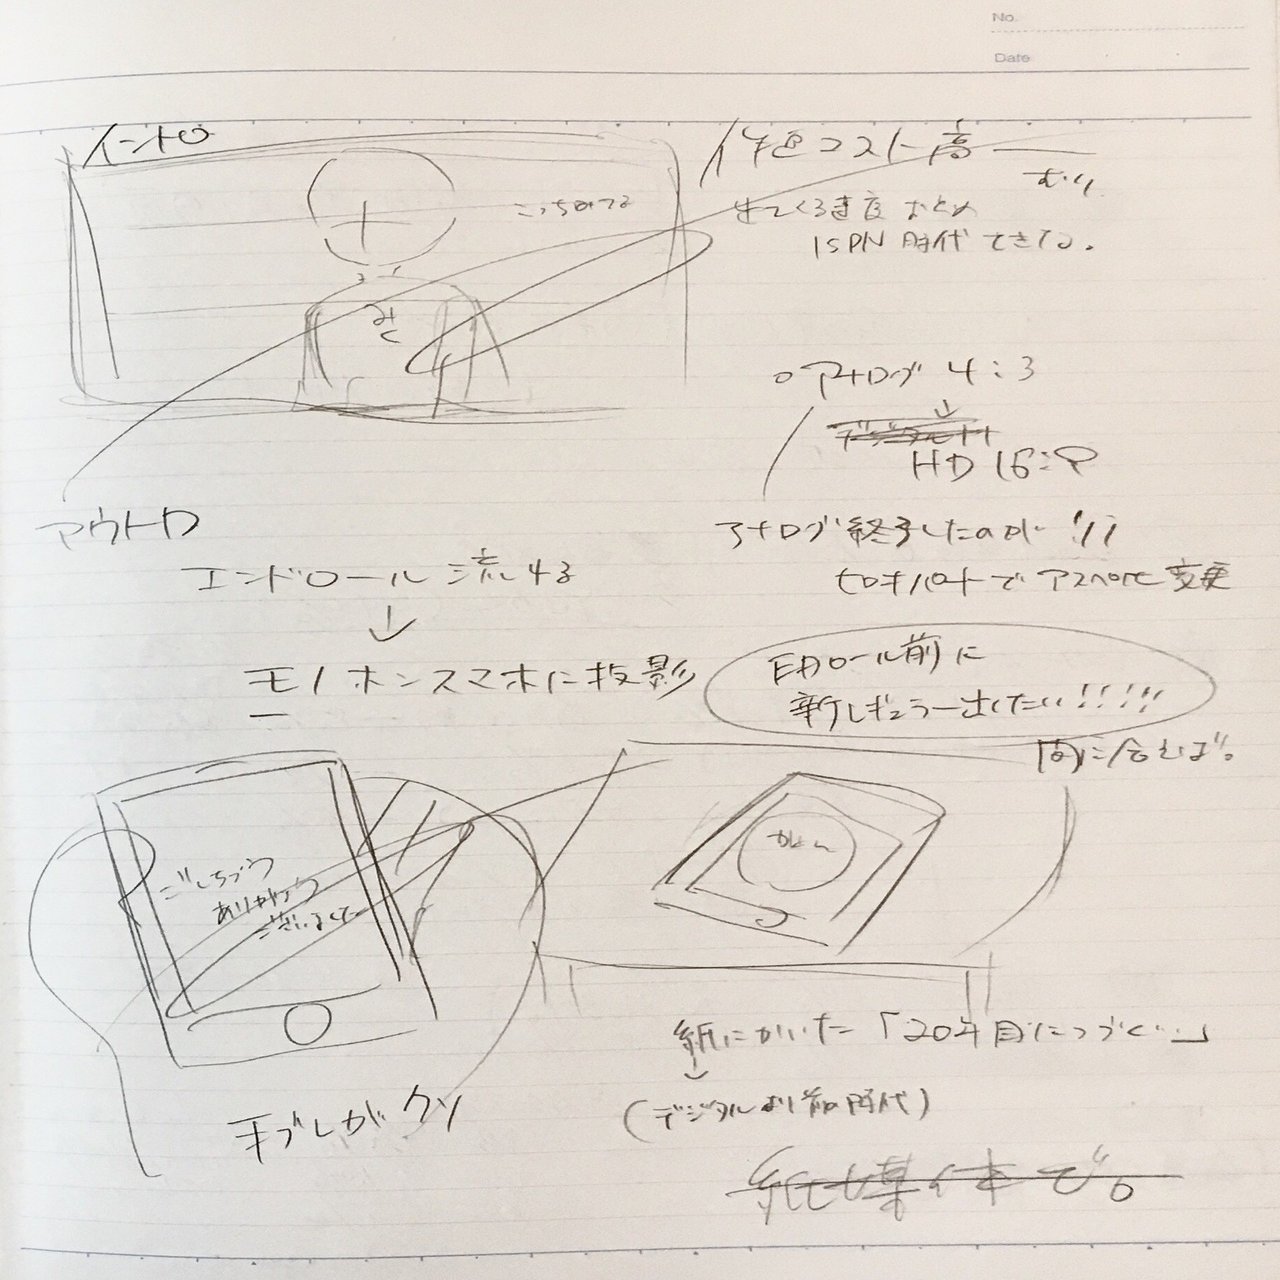 No.
Date
イントロ
作画コスト高
むり
こっちみてる
出てくる速度おとめ
ISPN時代できな。
みく
○アナログ 4:3
↓
デジタル
HD 16:9
アウトロ
アナログ終了したのが !!
エンドロール流れる
セロオパートでアスペクト変更
↓
モノホンスマホに投影
EDロール前に
新レギュラー出したい!!!!!
間に合えば。
ごしちょう
ありがとう
ございました
紙にかいた「20年目につづく…」
↓
(デジタルより前の時代)
手ブレがクソ
紙媒体で。